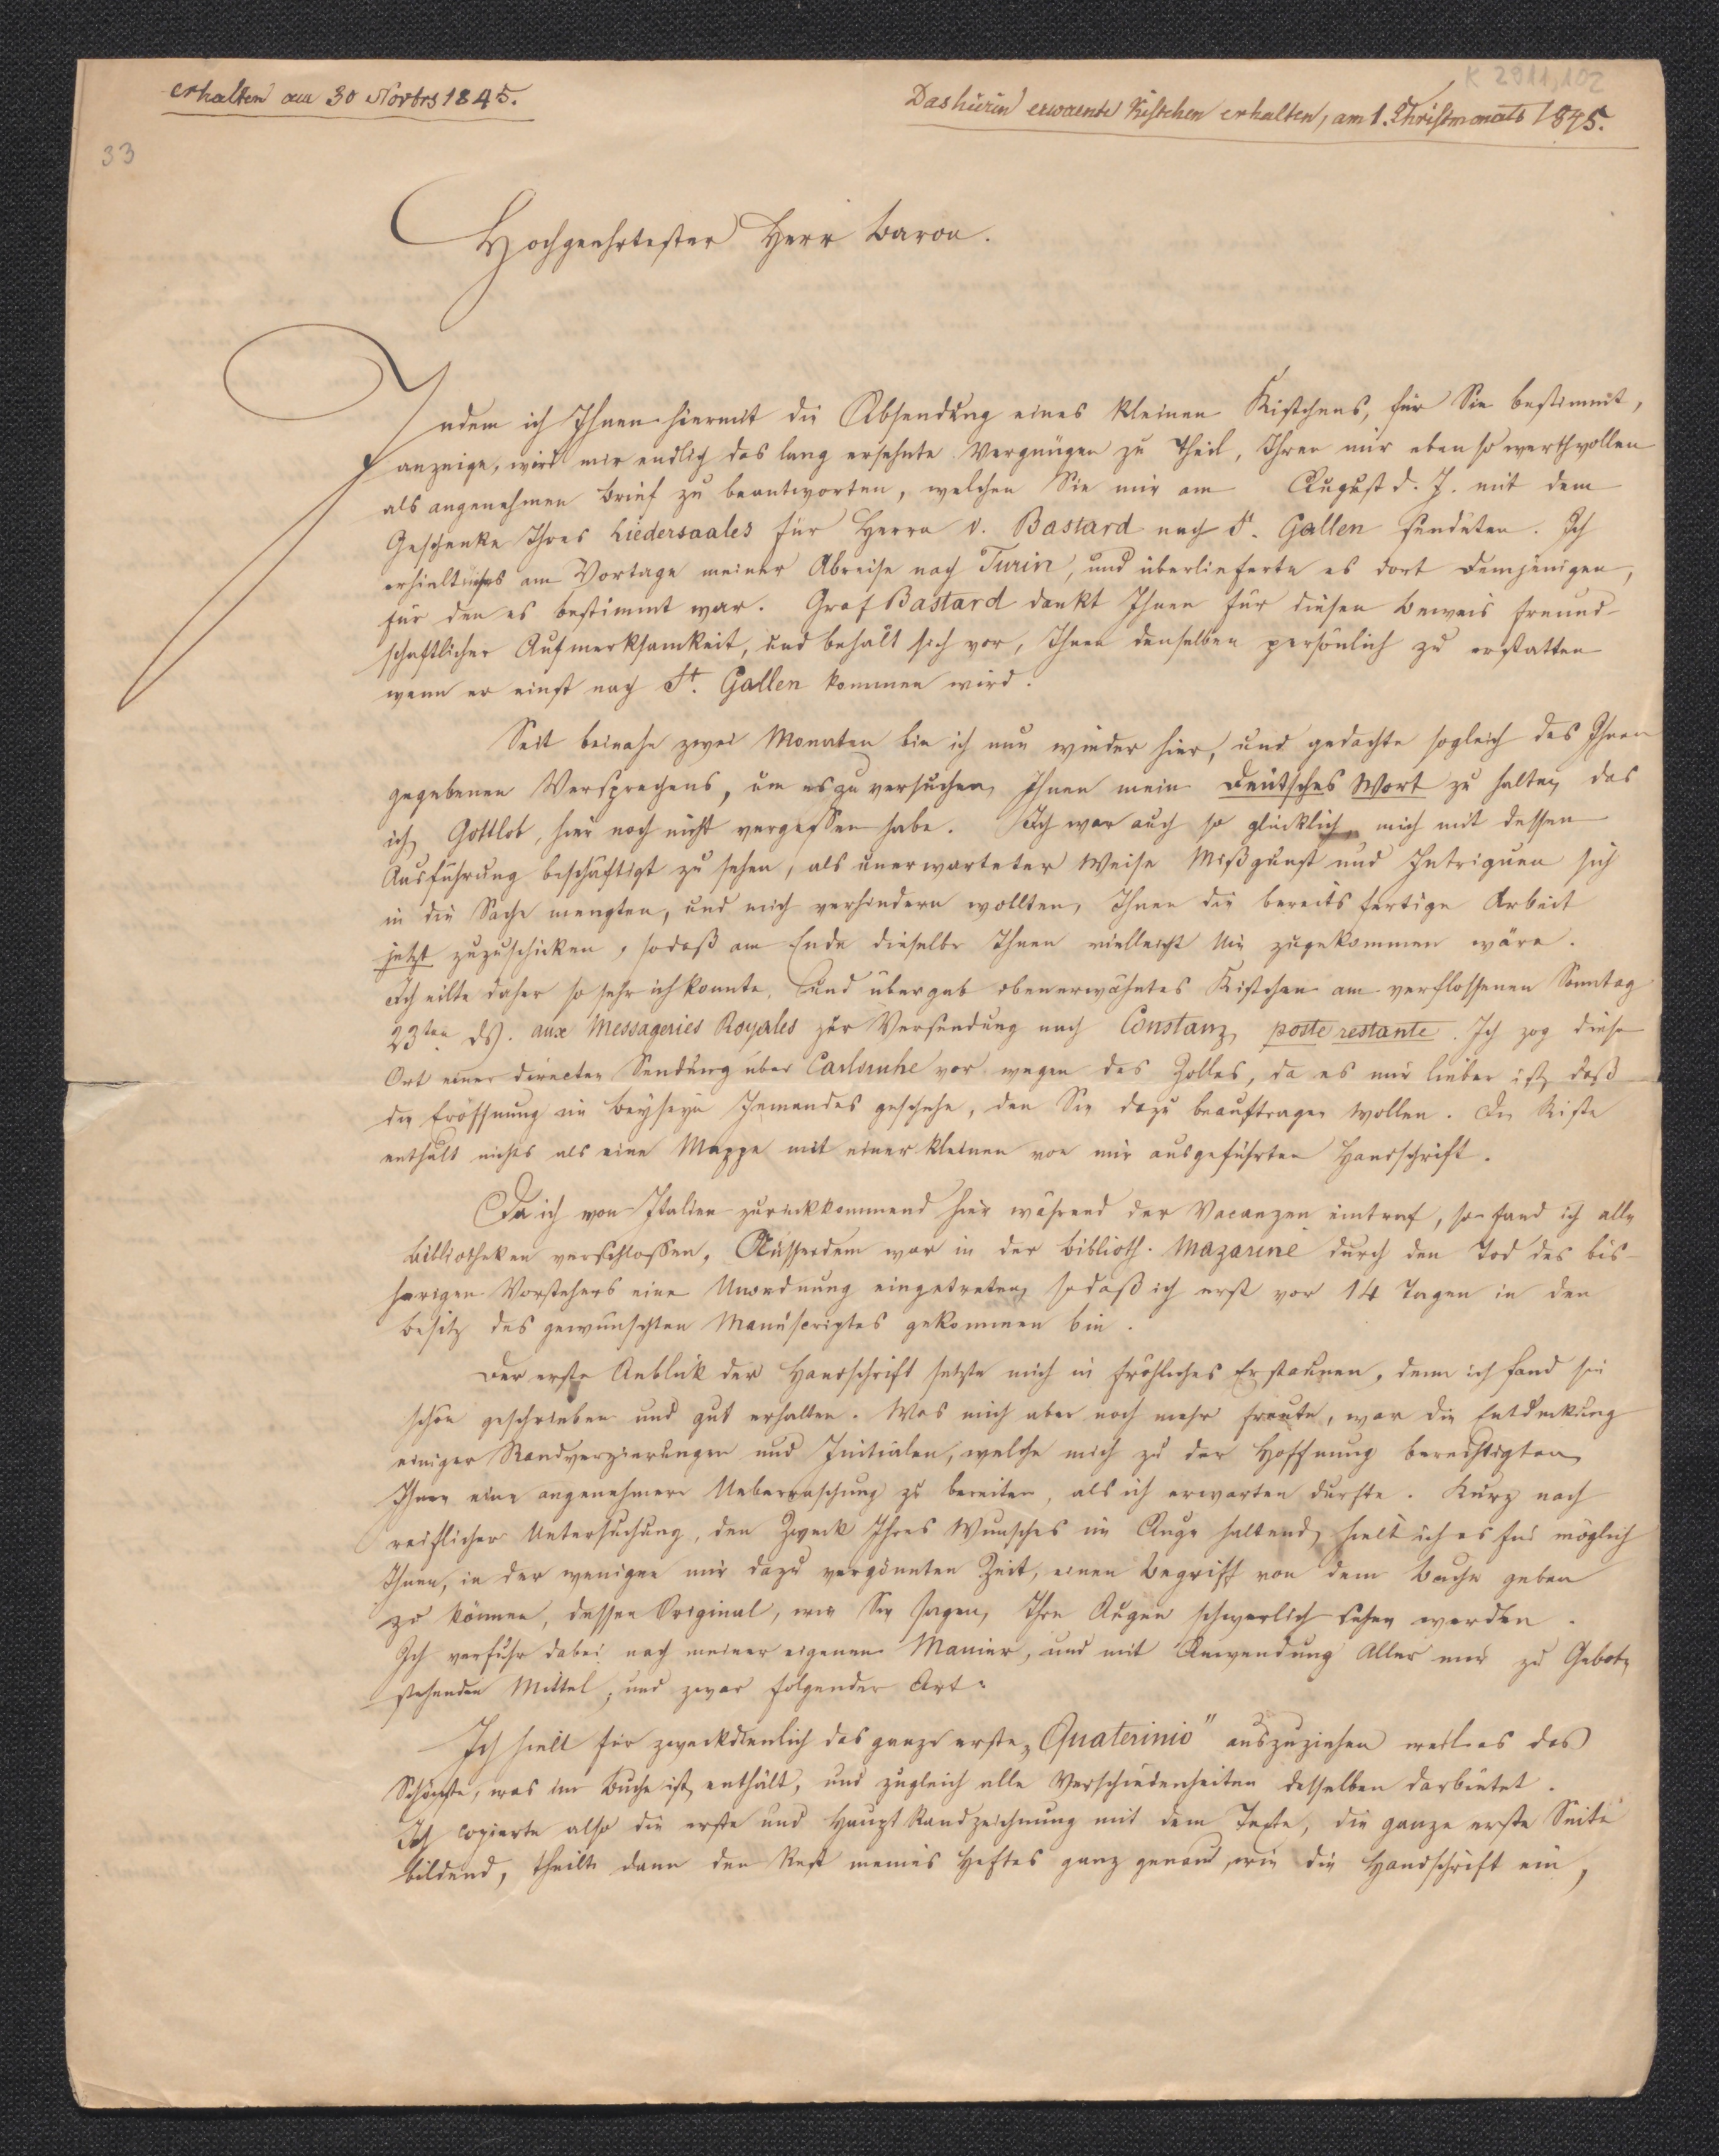 K 2911,102
erhalten am 30 Novbrs 1845.
Das hierin erwaente Kistchen erhalten, am 1. Christmonats 1845.
33
Hochgeehrtester Herr Baron.
Indem ich Ihnen hiermit die Absendung eines kleinen Kistchens, für Sie bestimmt,
anzeige, wird mir endlich das lang ersehnte Vergnügen zu Theil, Ihren mir eben so werthvollen
als angenehmen Brief zu beantworten, welchen Sie mir am August d. J. mit dem
Geschenke Ihres Liedersaales für Herrn v. Bastard nach St. Gallen sendeten. Ich
erhielt es am Vortage meiner Abreise nach Turin, und überlieferte es dort demjenigen,
für den es bestimmt war. Graf Bastard dankt Ihnen für diesen Beweis freund-
schaftlicher Aufmerksamkeit, und behält sich vor, Ihnen denselben persönlich zu erstatten
wenn er einst nach St. Gallen kommen wird.
Seit beinahe zwei Monaten bin ich nun wieder hier, und gedachte sogleich des Ihnen
gegebenen Versprechens, um es zu versuchen, Ihnen mein Deutsches Wort zu halten, das
ich, Gottlob, hier noch nicht vergessen habe. Ich war auch so glücklich, mich mit dessen
Ausführung beschäftigt zu sehen, als unerwarteter Weise Mißgunst und Intriguen sich
in die Sache mengten, und mich verhindern wollten, Ihnen die bereits fertige Arbeit
jetzt zuzuschicken, sodaß am Ende dieselbe Ihnen vielleicht nie zugekommen wäre.
Ich eilte daher so sehr ich konnte, und übergab obenerwähntes Kistchen am verflossenen Sonntag
23ten ds. aux Messageries Royales zur Versendung nach Constanz, poste restante. Ich zog diese
Art einer directen Sendung über Carlsruhe vor wegen des Zolles, da es mir lieber ist, daß
die Eröffnung im Beyseyn Jemandes geschehe, den Sie dazu beauftragen wollen. Die Kiste
enthält nichts als eine Mappe mit einer kleinen von mir ausgeführten Handschrift.
Da ich von Italien zurückkommend hier während der Vacanzen eintraf, so fand ich alle
Bibliotheken verschlossen. Ausserdem war in der Biblioth. Mazarine durch den Tod des bis-
herigen Vorstehers eine Unordnung eingetreten, sodaß ich erst vor 14 Tagen in den
Besitz des gewünschten Manuscriptes gekommen bin.
Der erste Anblick der Handschrift setzte mich in fröhliches Erstaunen, denn ich fand sie
schön geschrieben und gut erhalten. Was mich aber noch mehr freute, war die Entdeckung
einiger Randverzierungen und Initialen, welche mich zu der Hoffnung berechtigten
Ihnen eine angenehmere Ueberraschung zu bereiten, als ich erwarten durfte. Kurz nach
reiflicher Untersuchung, den Zweck Ihres Wunsches im Auge haltend, hielt ich es für möglich
Ihnen, in der wenigen mir dazu vergönnten Zeit, einen Begriff von dem Buche geben
zu können, dessen Original, wie Sie sagen, Ihre Augen schwerlich sehen werden.
Ich verfuhr dabei nach meiner eigenen Manier, und mit Anwendung Aller mir zu Gebote
stehenden Mittel, und zwar folgender Art:
Ich hielt für zweckdienlich das ganze erste „Quaterinio" auszuziehen weil es das
Schönste, was im Buche ist, enthält, und zugleich alle Verschiedenheiten desselben darbietet.
Ich copierte also die erste und Haupt Randzeichnung mit dem Texte, die ganze erste Seite
bildend, theilte dann den Rest meines Heftes ganz genau, wie die Handschrift ein,